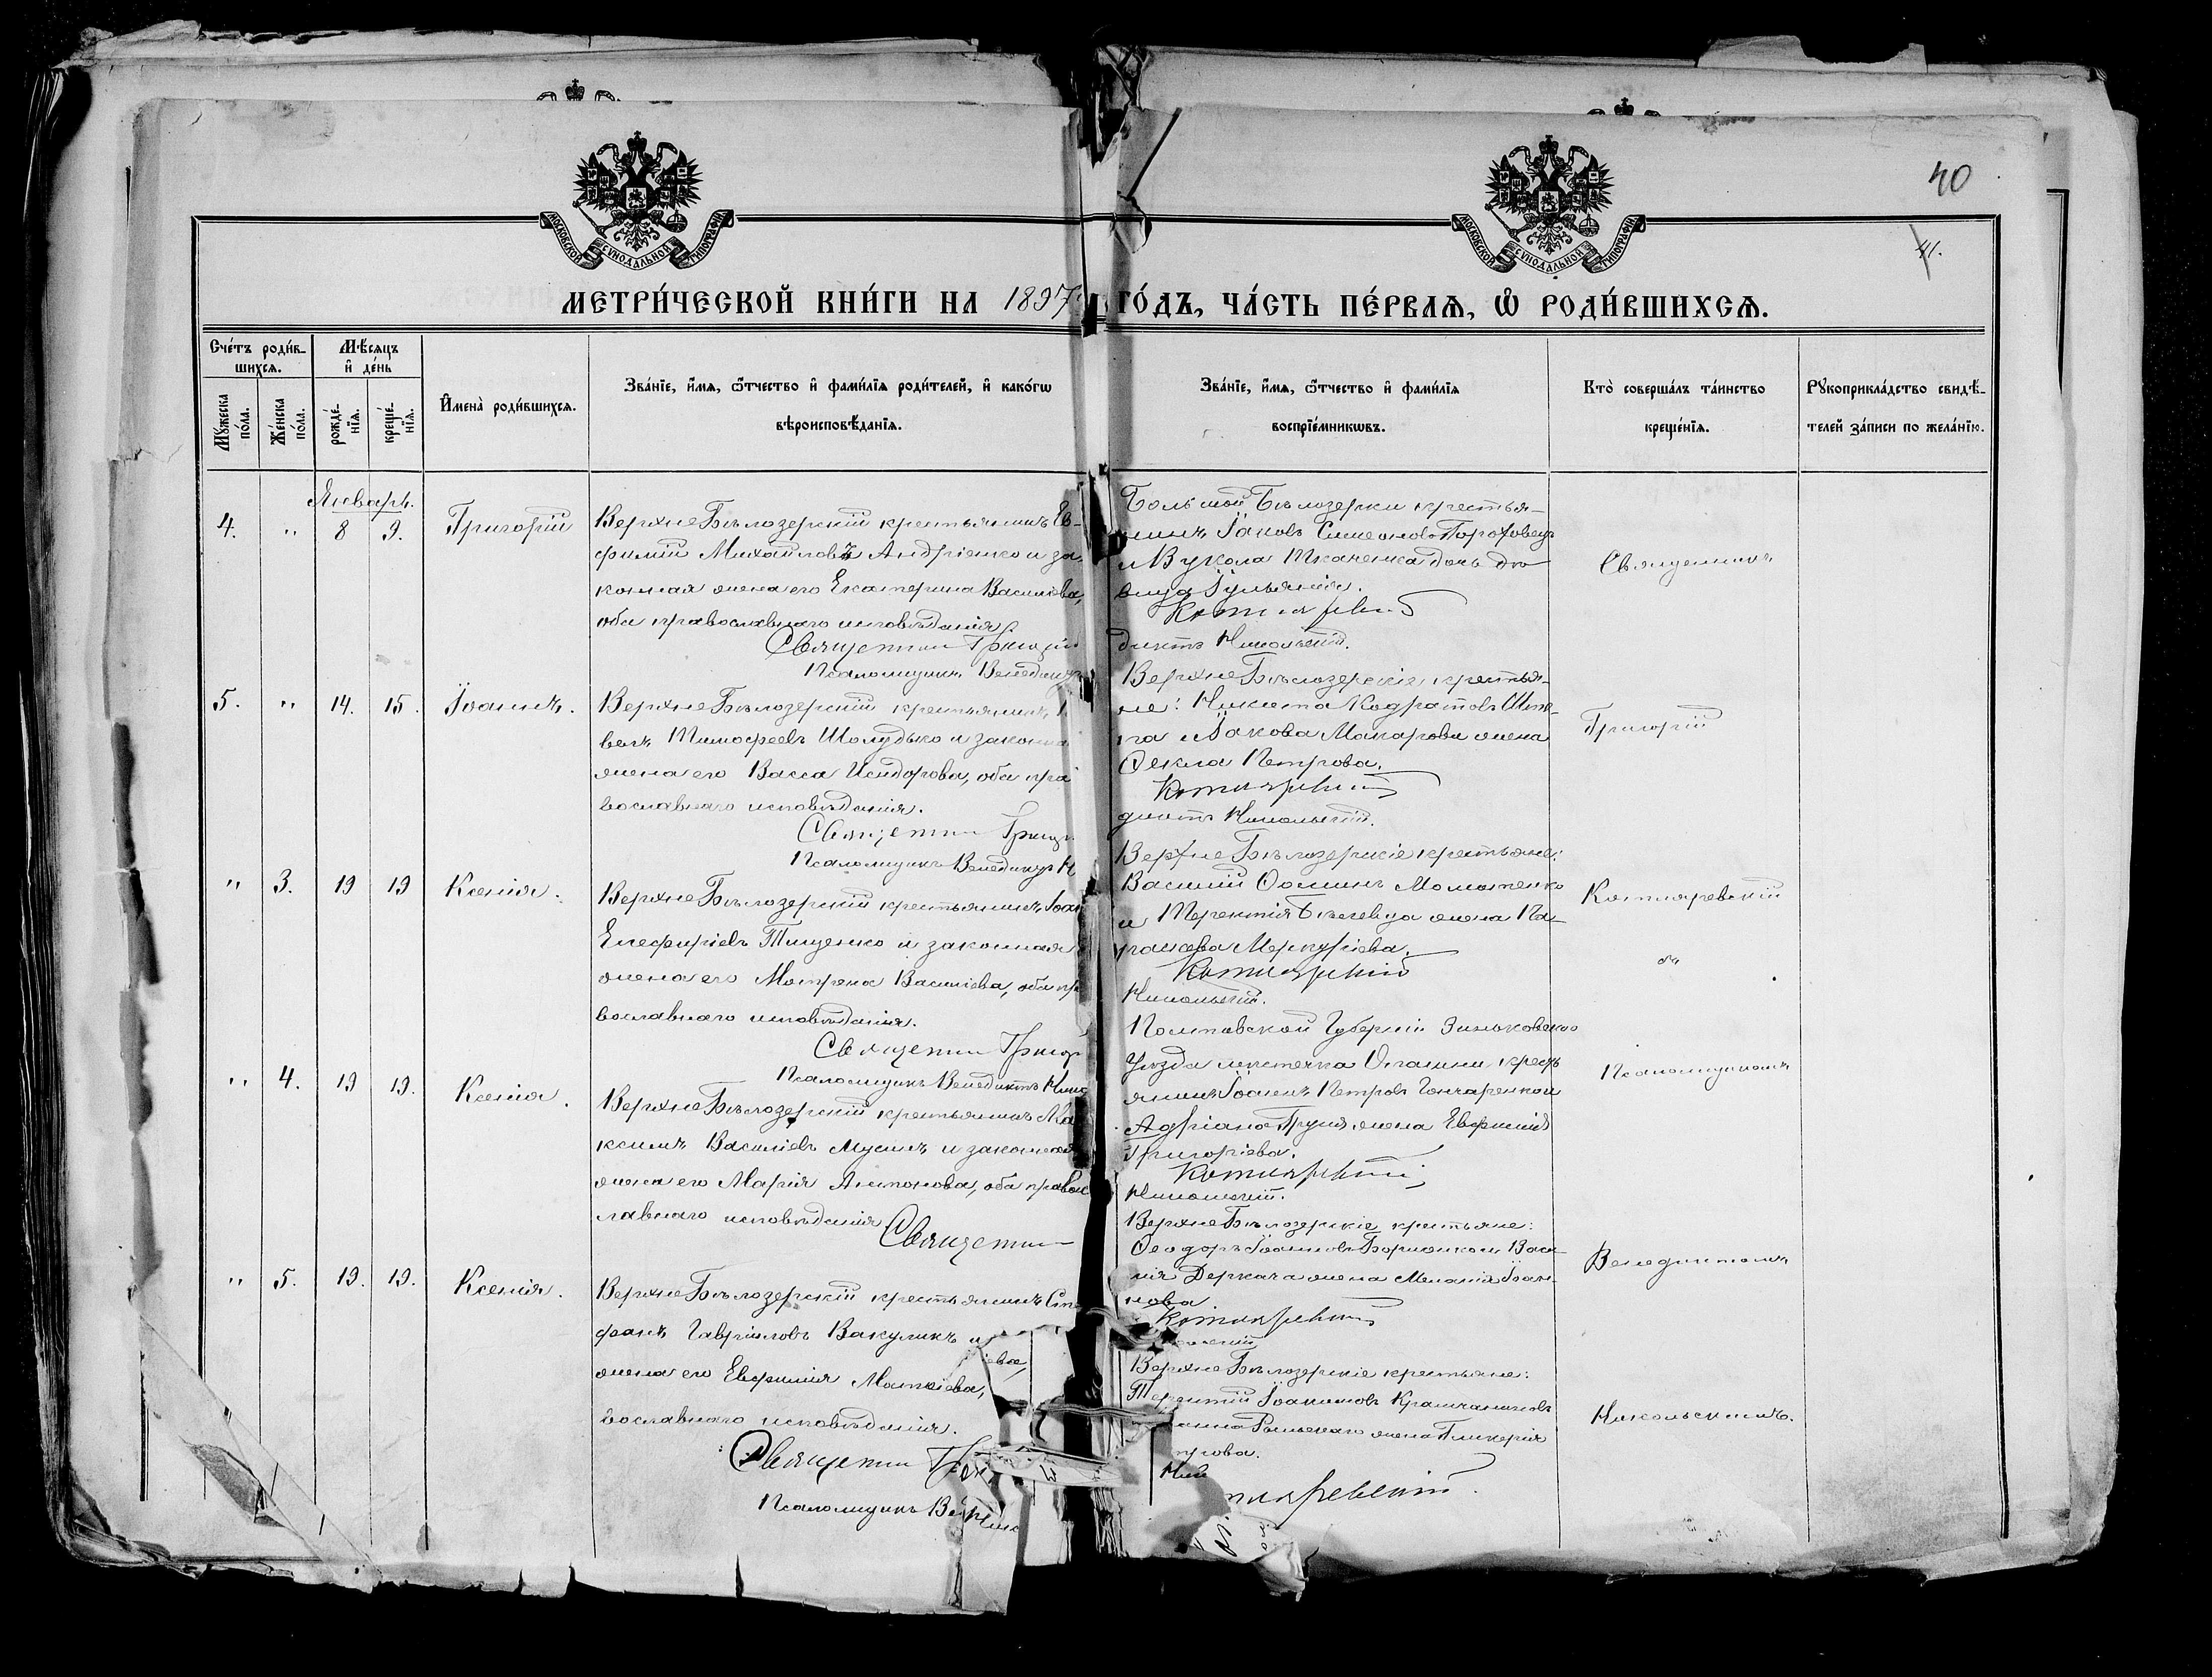 40
41.
МОСКОВСКОЙ СУНОДАЛЬНОЙ ТИПОГРАФІИ
МОСКОВСКОЙ СУНОДАЛЬНОЙ ТИПОГРАФІИ
МЕТРИ́ЧЕСКОЙ КНИ́ГИ НА 1897 ГО́ДЪ, ЧА́СТЬ ПЕ́РВАѦ, Ѡ҆ РОДИ́ВШИХСѦ.
Сче́тъ роди́в-
шихсѧ.
Му́жеска по́ла.
Же́нска по́ла.
Мѣ́сѧцъ и҆ де́нь
рожде́-
нїѧ.
креще́-
нїѧ.
И҆мена̀ роди́вшихсѧ.
Зва́нїе, и҆́мѧ, ѻ҆́тчество и҆ фами́лїѧ роди́телей, и҆ како́гѡ
вѣроисповѣ́данїѧ.
Зва́нїе, и҆́мѧ, ѻ҆́тчество и҆ фами́лїѧ
воспрїе́мникѡвъ.
Кто̀ соверша́лъ та́инство
креще́нїѧ.
Рꙋкоприкла́дство свидѣ́-
телей за́писи по жела́нїю.
Январь.
4. " 8 9. Григорій
Верхне Бѣлозерскій крестьянинъ Ев-
фимій Михайловъ Андріенко и за
конная жена его Екатерина Василіева,
оба православнаго исповѣданія
Священник Григорій
Псаломщикъ Венедиктъ
Большой Бѣлозерки крестья-
нинъ Іаковъ Симеоновъ Гороховецъ
и Вукола Ткаченка дочь дѣ
вица Іуліанія.
Котляревскій
диктъ Никольскій.
Священникъ
5. " 14. 15. Іоаннъ.
Верхне Бѣлозерскій крестьянинъ
велъ Тимофеевъ Шолудько и законная
жена его Васса Исидорова, оба пра
вославнаго исповѣданія.
Священник Григорій
Псаломщикъ Венедиктъ Н
Верхне Бѣлозерскіе крестья-
не: Никита Кодратовъ
и Іакова Макарова жена
Ѳекла Петрова.
Котляревскій
диктъ Никольскій.
Григорій
" 3. 19 19 Ксенія.
Верхне Бѣлозерскій крестьянинъ Іоан
Елефиріевъ Тищенко и законная
жена его Матрена Василіева, оба пра
вославнаго исповѣданія.
Священник Григор
Псаломщикъ Венедиктъ Нико
Верхне Бѣлозерскіе крестьяне:
Василій Ѳоминъ Момотенко
и Терентія жена Па-
раскева Меркуріева.
Котляревскій
Никольскій.
Котляревскій
съ
" 4. 19 19. Ксенія.
Верхне Бѣлозерскій крестьянинъ Ма
ксимъ Василіевъ Мусинъ и законная
жена его Марія Антонова, оба правос
лавнаго исповѣданія
Священник
Полтавской Губерніи Зиньковского
Уѣзда мѣстечка крестья
янинъ Іоаннъ Петровъ Гончаренко и
Адріана жена Евфимія
Григоріева.
Котляревскій
Никольскій.
Псаломщикомъ
" 5. 19. 19. Ксенія.
Верхне Бѣлозерскій крестьянинъ Сте
фанъ Гавріиловъ Вакуликъ и
жена его Евфимія Маткіева,
вославнаго исповѣданія.
Священник
Псаломщикъ Ве
Верхне Бѣлозерскіе крестьяне:
Ѳеодоръ Іоанновъ и Васи-
лія Деркача жена Меланія Іоан-
нова
Котляревскій
Венедиктомъ
Верхне Бѣлозерскіе крестьяне:
Терентій Іоакимовъ
жена Гликерія
трова.
тляревскій.
Никольскимъ.